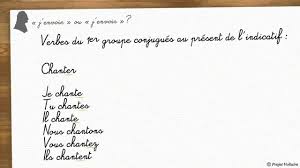 « j'envoie » ou « j'envoi » ?
Verbes du 1er groupe conjugués au présent de l'indicatif :
Chanter
Je chante
Tu chantes
Il chante
Nous chantons
Vous chantez
Ils chantent
© Projet Voltaire